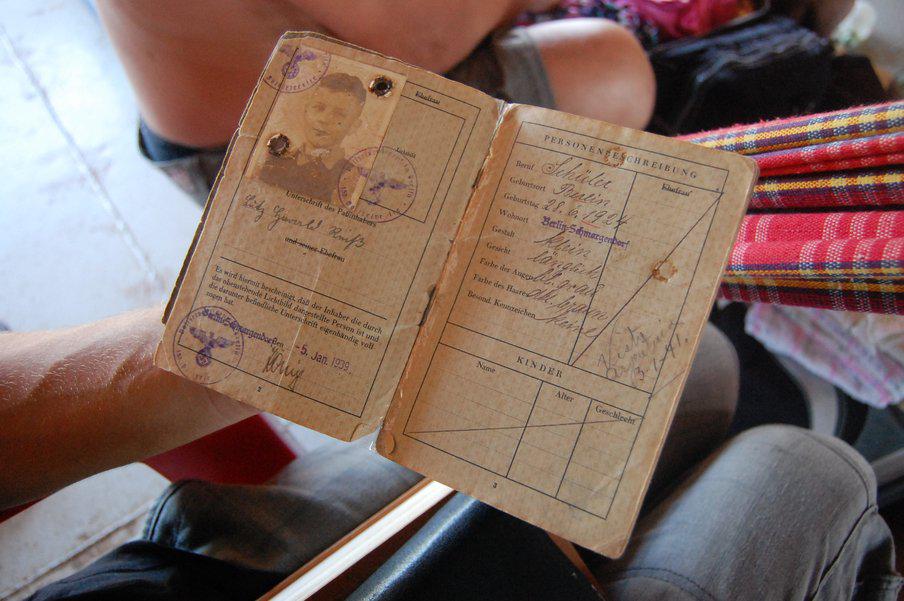 Ehefrau
Lichtbild
Unterschrift des Paßinhabers
und seiner Ehefrau
Es wird hiermit bescheinigt, daß der Inhaber die durch
das obenstehende Lichtbild dargestellte Person ist und
die darunter befindliche Unterschrift eigenhändig voll-
zogen hat.
Berlin-Schmargendorf den - 5. Jan. 1939.
2
PERSONENBESCHREIBUNG
Ehefrau
Beruf Schüler
Geburtsort Berlin
Geburtstag 20.6.1924
Wohnort Berlin-Schmargendorf
Gestalt klein
Gesicht länglich
Farbe des Augen bl. grau
Farbe des Haares dkl. braun
Besond. Kennzeichen keine
KINDER
Name
Alter
Geschlecht
3